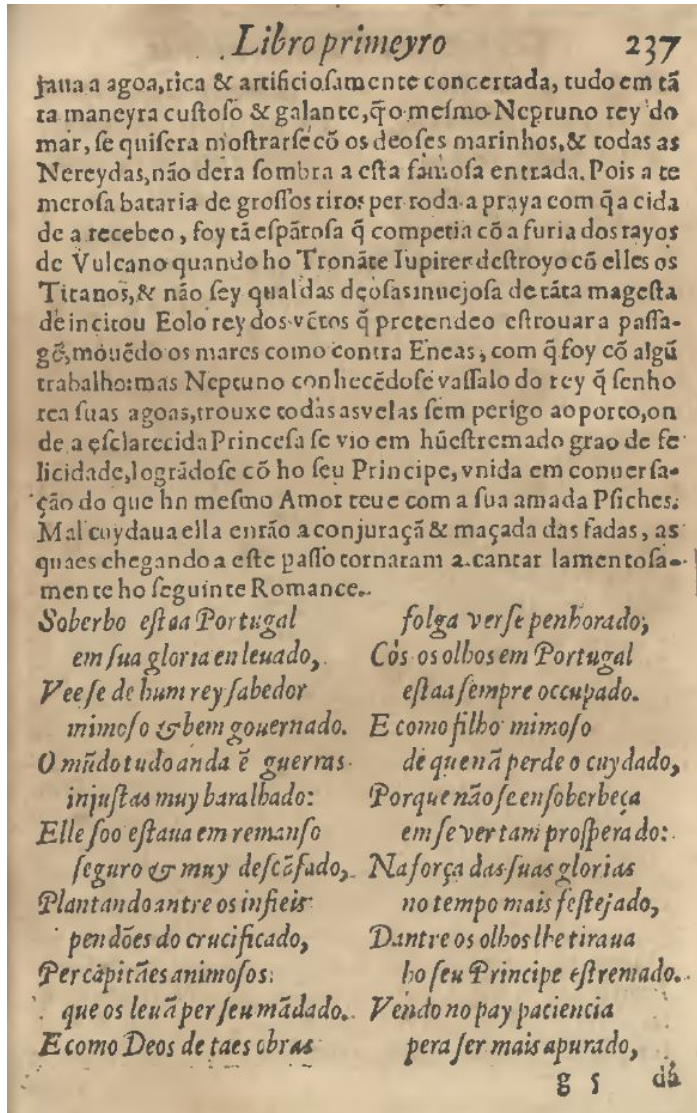 Libro primeyro 237
jaua a agoa, rica & artificiosamente concertada, tudo em tã
ta maneyra custoso & galante, q̃ o mesmo Neptuno rey do
mar, se quisera mostrarse cõ os deoses marinhos, & todas as
Nereydas, não dera sombra a esta famosa entrada. Pois a te
merosa bataria de grossos tiros per toda a praya com q̃ a cida
de a recebeo, foy tã espãtosa q̃ competia cõ a furia dos rayos
de Vulcano quando ho Tronãte Iupiter destroyo cõ elles os
Titanos, & não sey qual das deosas inuejosa de tãta magesta
de incitou Eolo rey dos vẽtos q̃ pretendeo estrouar a passa-
gẽ, mouẽdo os mares como contra Eneas, com q̃ foy cõ algũ
trabalho: mas Neptuno conhecẽdose vassalo do rey q̃ senho
rea suas agoas, trouxe todas as velas sem perigo ao porto, on
de a esclarecida Princesa se vio em hũ estremado grao de fe
licidade, lográdose cõ ho seu Principe, vnida em conuersa-
ção do que hn mesmo Amor teue com a sua amada Psiches.
Mal cuydaua ella então a conjuraçã & maçada das fadas, as
quaes chegando a este passo tornaram a cantar lamentosa-
mente ho seguinte Romance.
Soberbo estaa Portugal
em sua gloria enleuado,
Veese de hum rey sabedor
mimoso & bem gouernado.
O mũdo tudo anda ẽ guerras
injustas muy baralhado:
Elle soo estaua em remanso
seguro & muy descãsado,
Plantando antre os infieis
pendões do crucificado,
Per capitães animosos
que os leuã per seu mãdado.
E como Deos de taes obras
folga verse penhorado;
Cos os olhos em Portugal
estaa sempre occupado.
E como filho mimoso
de quẽ nã perde o cuydado,
Porque não se ensoberbeça
em se ver tam prosperado:
Na força das suas glorias
no tempo mais festejado,
Dantre os olhos lhe tiraua
ho seu Principe estremado.
Vendo no pay paciencia
pera ser mais apurado,
g 5 dá